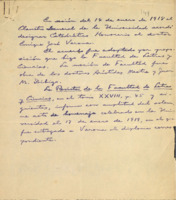 En sesión del 14 de enero de 1918 el
Claustro General de la Universidad acordó
designar Catedrático Honorario al doctor
Enrique José Varona.
Este acuerdo fue adoptado por propo-
sición que hizo la Facultad de Letras y
Ciencias. La moción de Facultad fue
obra de los doctores Arístides Mestre y Juan
M. Dihigo.
La Revista de la Facultad de Letras
y Ciencias, en el tomo XXVIII, p. 45 y
siguientes, informa con amplitud del solem-
ne acto de homenaje celebrado en la Univer-
sidad el 17 de enero de 1919, en el que
fue entregado a Varona el diploma corres-
pondiente.